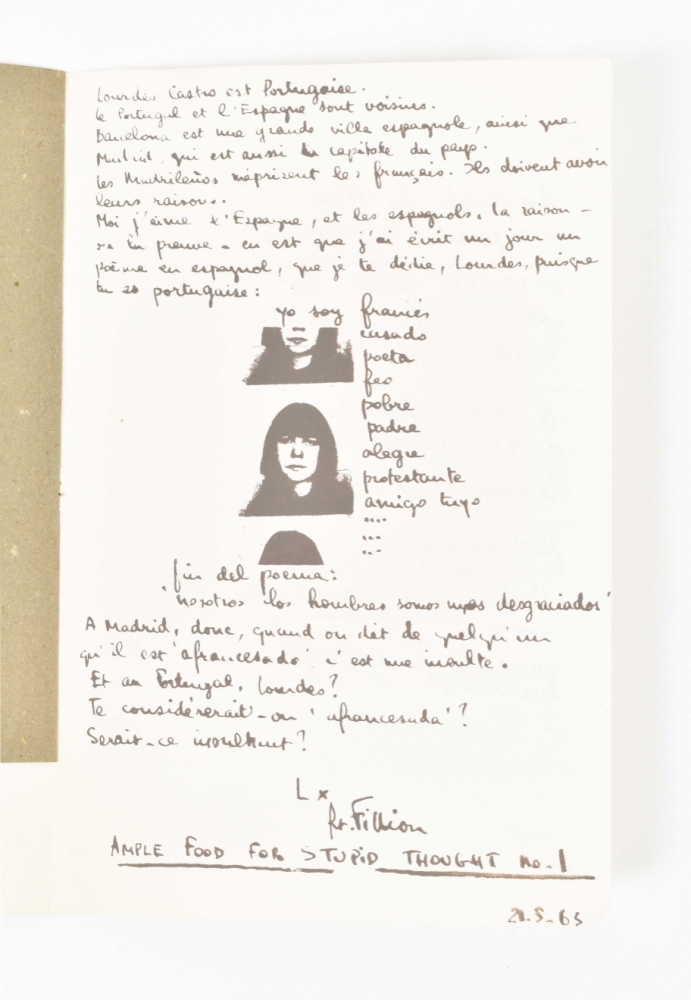 Lourdes Castro est Portugaise.
Le Portugal et l'Espagne sont voisins.
Barcelona est une grande ville espagnole, ainsi que
Madrid, qui est aussi la capitale du pays.
Les Madrileños méprisent les français. Ils doivent avoir
leurs raisons.
Moi j'aime l'Espagne, et les espagnols. La raison –
la preuve – en est que j'ai écrit un jour un
poème en espagnol, que je te dédie, Lourdes, puisque
tu es portugaise :
yo soy francés
casado
poeta
feo
pobre
padre
alegre
protestante
amigo tuyo
....
...
...
fin del poema :
'nosotros los hombres somos unos desgraciados'
A Madrid, donc, quand on dit de quelqu'un
qu'il est 'afrancesado' c'est une insulte.
Et au Portugal, Lourdes?
Te considérerait-on 'afrancesada'?
Serait-ce insultant?
L x
Filliou
AMPLE FOOD FOR STUPID THOUGHT No. 1